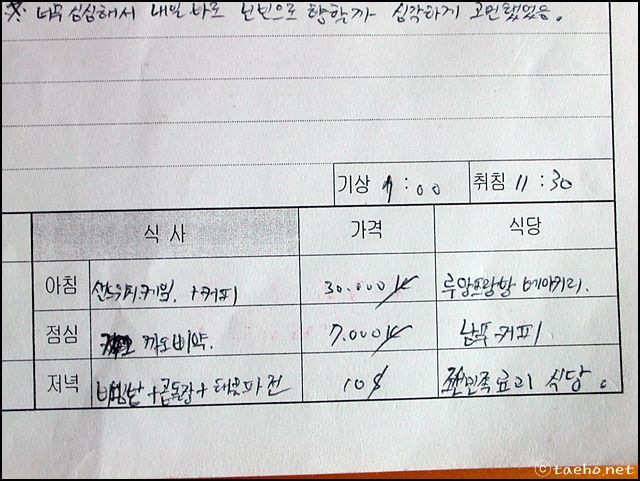 ※ 너무 심심해서 내일 바로 닌빈으로 향할까 심각하게 고민했었음.
기상 9:00 취침 11:30
식사 가격 식당
아침 샌드위치.케잌. +커피 30.000 루앙프라방 베이커리.
점심 카오삐약. 7.000 남푸 커피
저녁 비빔밥+된장+해물파전 10$ 한민족요리 식당.
ⓒtaeho.net